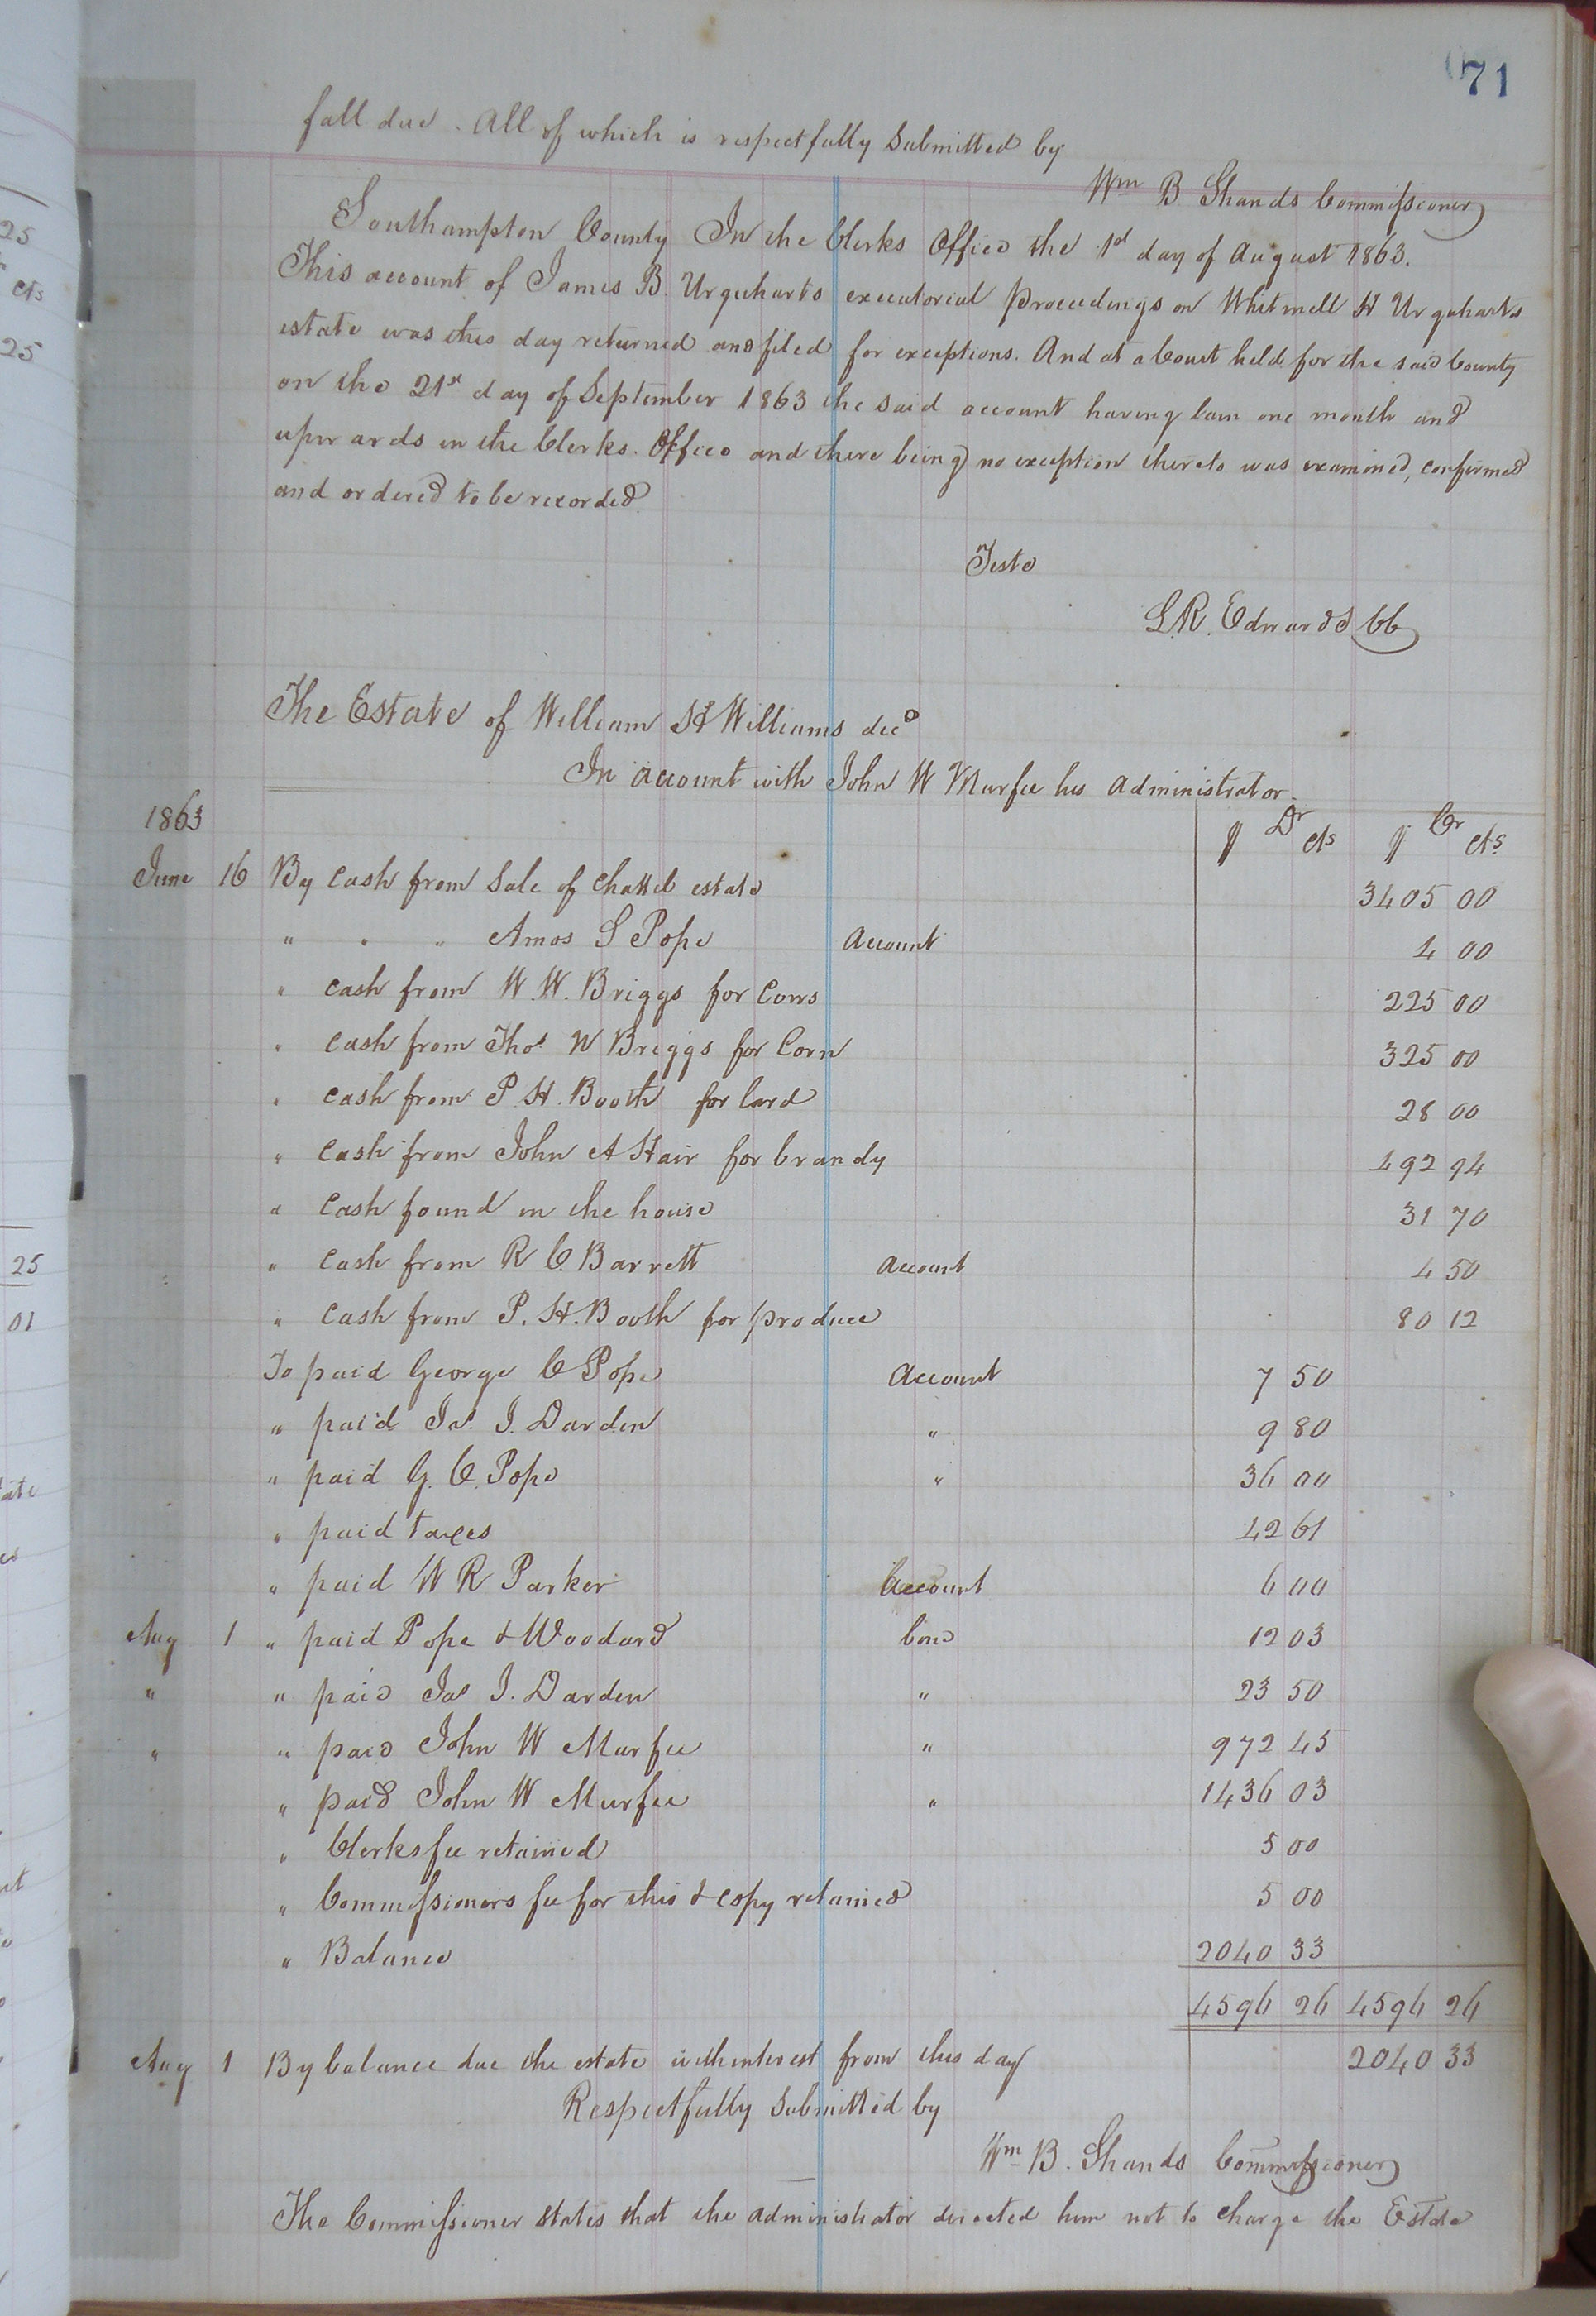 71
fall due. All of which is respectfully submitted by
Wm B. Shands Commissioner
Southampton County In the Clerks Office the 1st day of August 1863.
This account of James B. Urquharts executorial proceedings on Whitmell H Urquharts
estate was this day returned and filed for exceptions. And at a Court held for the said County
on the 21st day of September 1863 the said account having lain one month and
upwards in the Clerks Office and there being no exception thereto was examined, confirmed
and ordered to be recorded
Teste
L.R. Edwards CC
The Estate of William H Williams decd
In account with John W Murfee his administrator
1863
$ Dr cts $ Cr cts
June 16 By cash from sale of chattel estate 3405 00
" " " Amos S Pope Account 4 00
" cash from W.W. Briggs for Cows 225 00
" cash from Thos W Briggs for Corn 325 00
" cash from P.H. Booth for lard 28 00
" cash from John A Hair for brandy 492 94
" cash found in the house 31 70
" cash from R C. Barrett Account 4 50
" cash from P. H. Booth for produce 80 12
To paid George C Pope Account 7 50
" paid Jas. J. Darden " 9 80
" paid G. C. Pope " 36 00
" paid taxes 42 61
" paid W R Parker Account 6 00
Aug 1 " paid Pope & Woodard bond 12 03
" " paid Jas J. Darden " 23 50
" " paid John W Murfee " 972 45
" paid John W Murfee " 1436 03
" Clerks fee retained 5 00
" Commissioners fee for this & copy retained 5 00
" Balance 2040 33
4596 26 4596 26
Aug 1 By balance due the estate with interest from this day 2040 33
Respectfully submitted by
Wm B. Shands Commissioner
The Commissioner states that the administrator directed him not to charge the Estate
25
cts
25
25
01